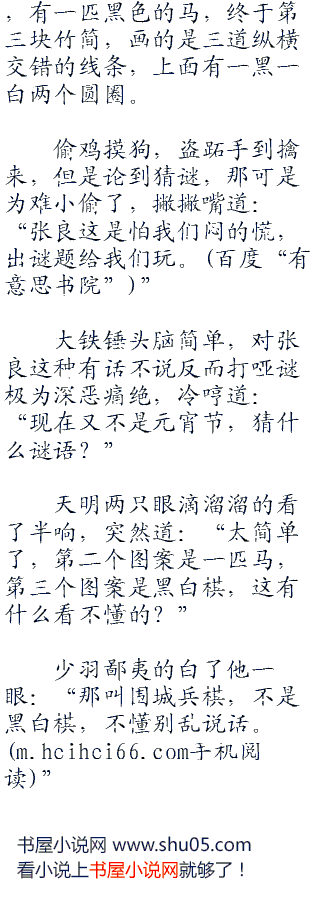 ，有一匹黑色的马，终于第
三块竹简，画的是三道纵横
交错的线条，上面有一黑一
白两个圆圈。
偷鸡摸狗，盗跖手到擒
来，但是论到猜谜，那可是
为难小偷了，撇撇嘴道：
“张良这是怕我们闷的慌，
出谜题给我们玩。(百度“有
意思书院”)”
大铁锤头脑简单，对张
良这种有话不说反而打哑谜
极为深恶痛绝，冷哼道：
“现在又不是元宵节，猜什
么谜语？”
天明两只眼滴溜溜的看
了半响，突然道：“太简单
了，第二个图案是一匹马，
第三个图案是黑白棋，这有
什么看不懂的？”
少羽鄙夷的白了他一
眼：“那叫围城兵棋，不是
黑白棋，不懂别乱说话。
(m.hcihci66.com手机阅
读)”
书屋小说网 www.shu05.com
看小说上书屋小说网就够了！